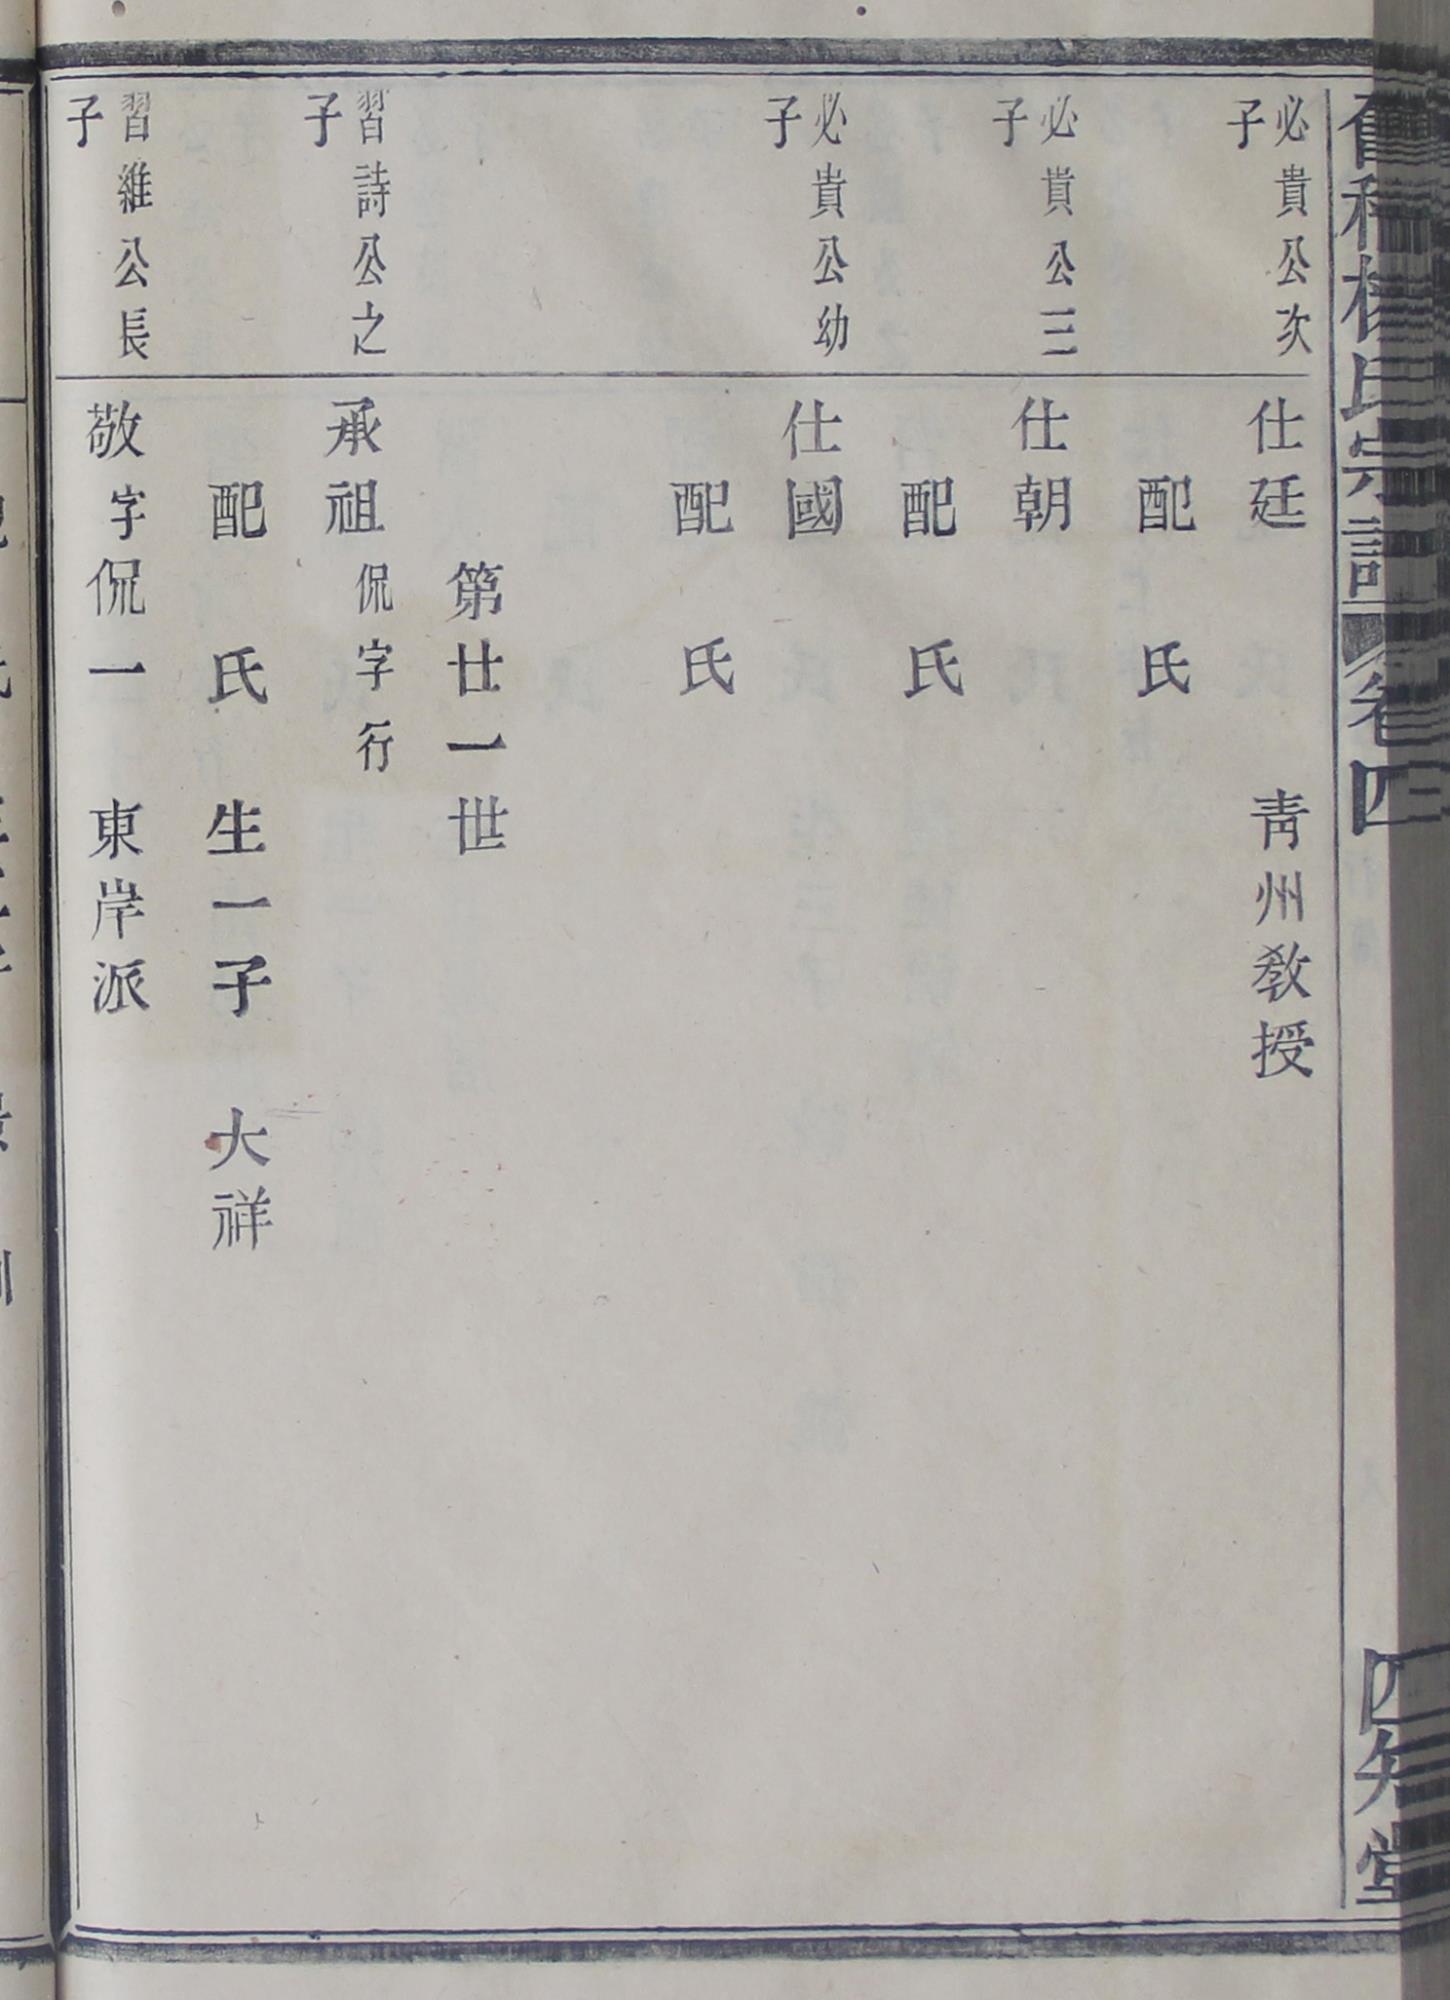 氏宗譜 卷四
四知堂
必貴公次
子
仕廷 青州敎授
配 氏
必貴公三
子
仕朝
配 氏
必貴公幼
子
仕國
配 氏
第廿一世
習詩公之
子
承祖侃字行
配 氏 生一子 大祥
習維公長
子
敬字侃一 東岸派